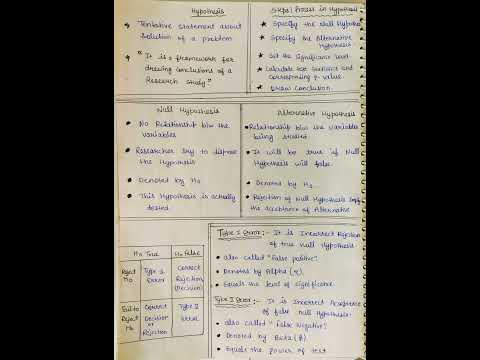 Hypothesis
→ Tentative statement about
Solution of a problem
→ "It is a framework for
drawing conclusions of a
Research study."
Steps/Process in Hypothesis
★ Specify the Null Hypothesis
★ Specify the Alternative
Hypothesis
★ Set the Significance level
★ Calculate test Statistic and
Corresponding p value
★ Draw Conclusion
Null Hypothesis
• No Relationship b/w the
Variables
• Researcher try to disprove
the Hypothesis
• Denoted by H₀
• This Hypothesis is actually
tested
Alternative Hypothesis
• Relationship b/w the Variables
being studied
• It will be true if Null
Hypothesis will false
• Denoted by H₁
• Rejection of Null Hypothesis
the acceptance of Alternative
H₀ True
H₀ False
Reject
H₀
Type I
Error
Correct
Rejection
(Decision)
Fail to
Reject
H₀
Correct
Decision
or
Rejection
Type II
Error
Type I Error :- It is Incorrect Rejection
of true null Hypothesis
• also called "False positive"
• Denoted by Alpha (α).
• Equals the level of significance
Type II Error :- It is Incorrect Acceptance
of false null Hypothesis
• also called "False Negative"
• Denoted by Beta (β)
• Equals the power of test